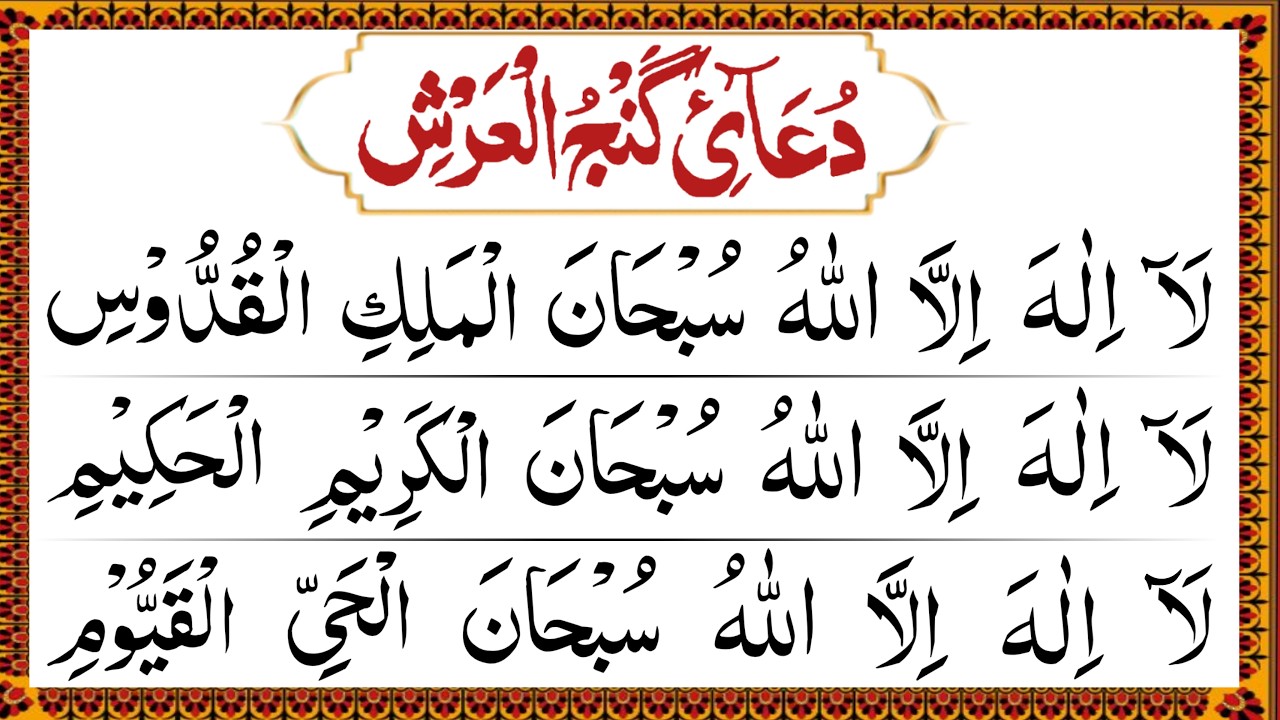 دُعَآئِ گَنْجُ الْعَرْشِ
لَآ اِلٰهَ اِلَّا اللّٰهُ سُبْحَانَ الْمَلِكِ الْقُدُّوْسِ
لَآ اِلٰهَ اِلَّا اللّٰهُ سُبْحَانَ الْكَرِيْمِ الْحَكِيْمِ
لَآ اِلٰهَ اِلَّا اللّٰهُ سُبْحَانَ الْحَيِّ الْقَيُّوْمِ